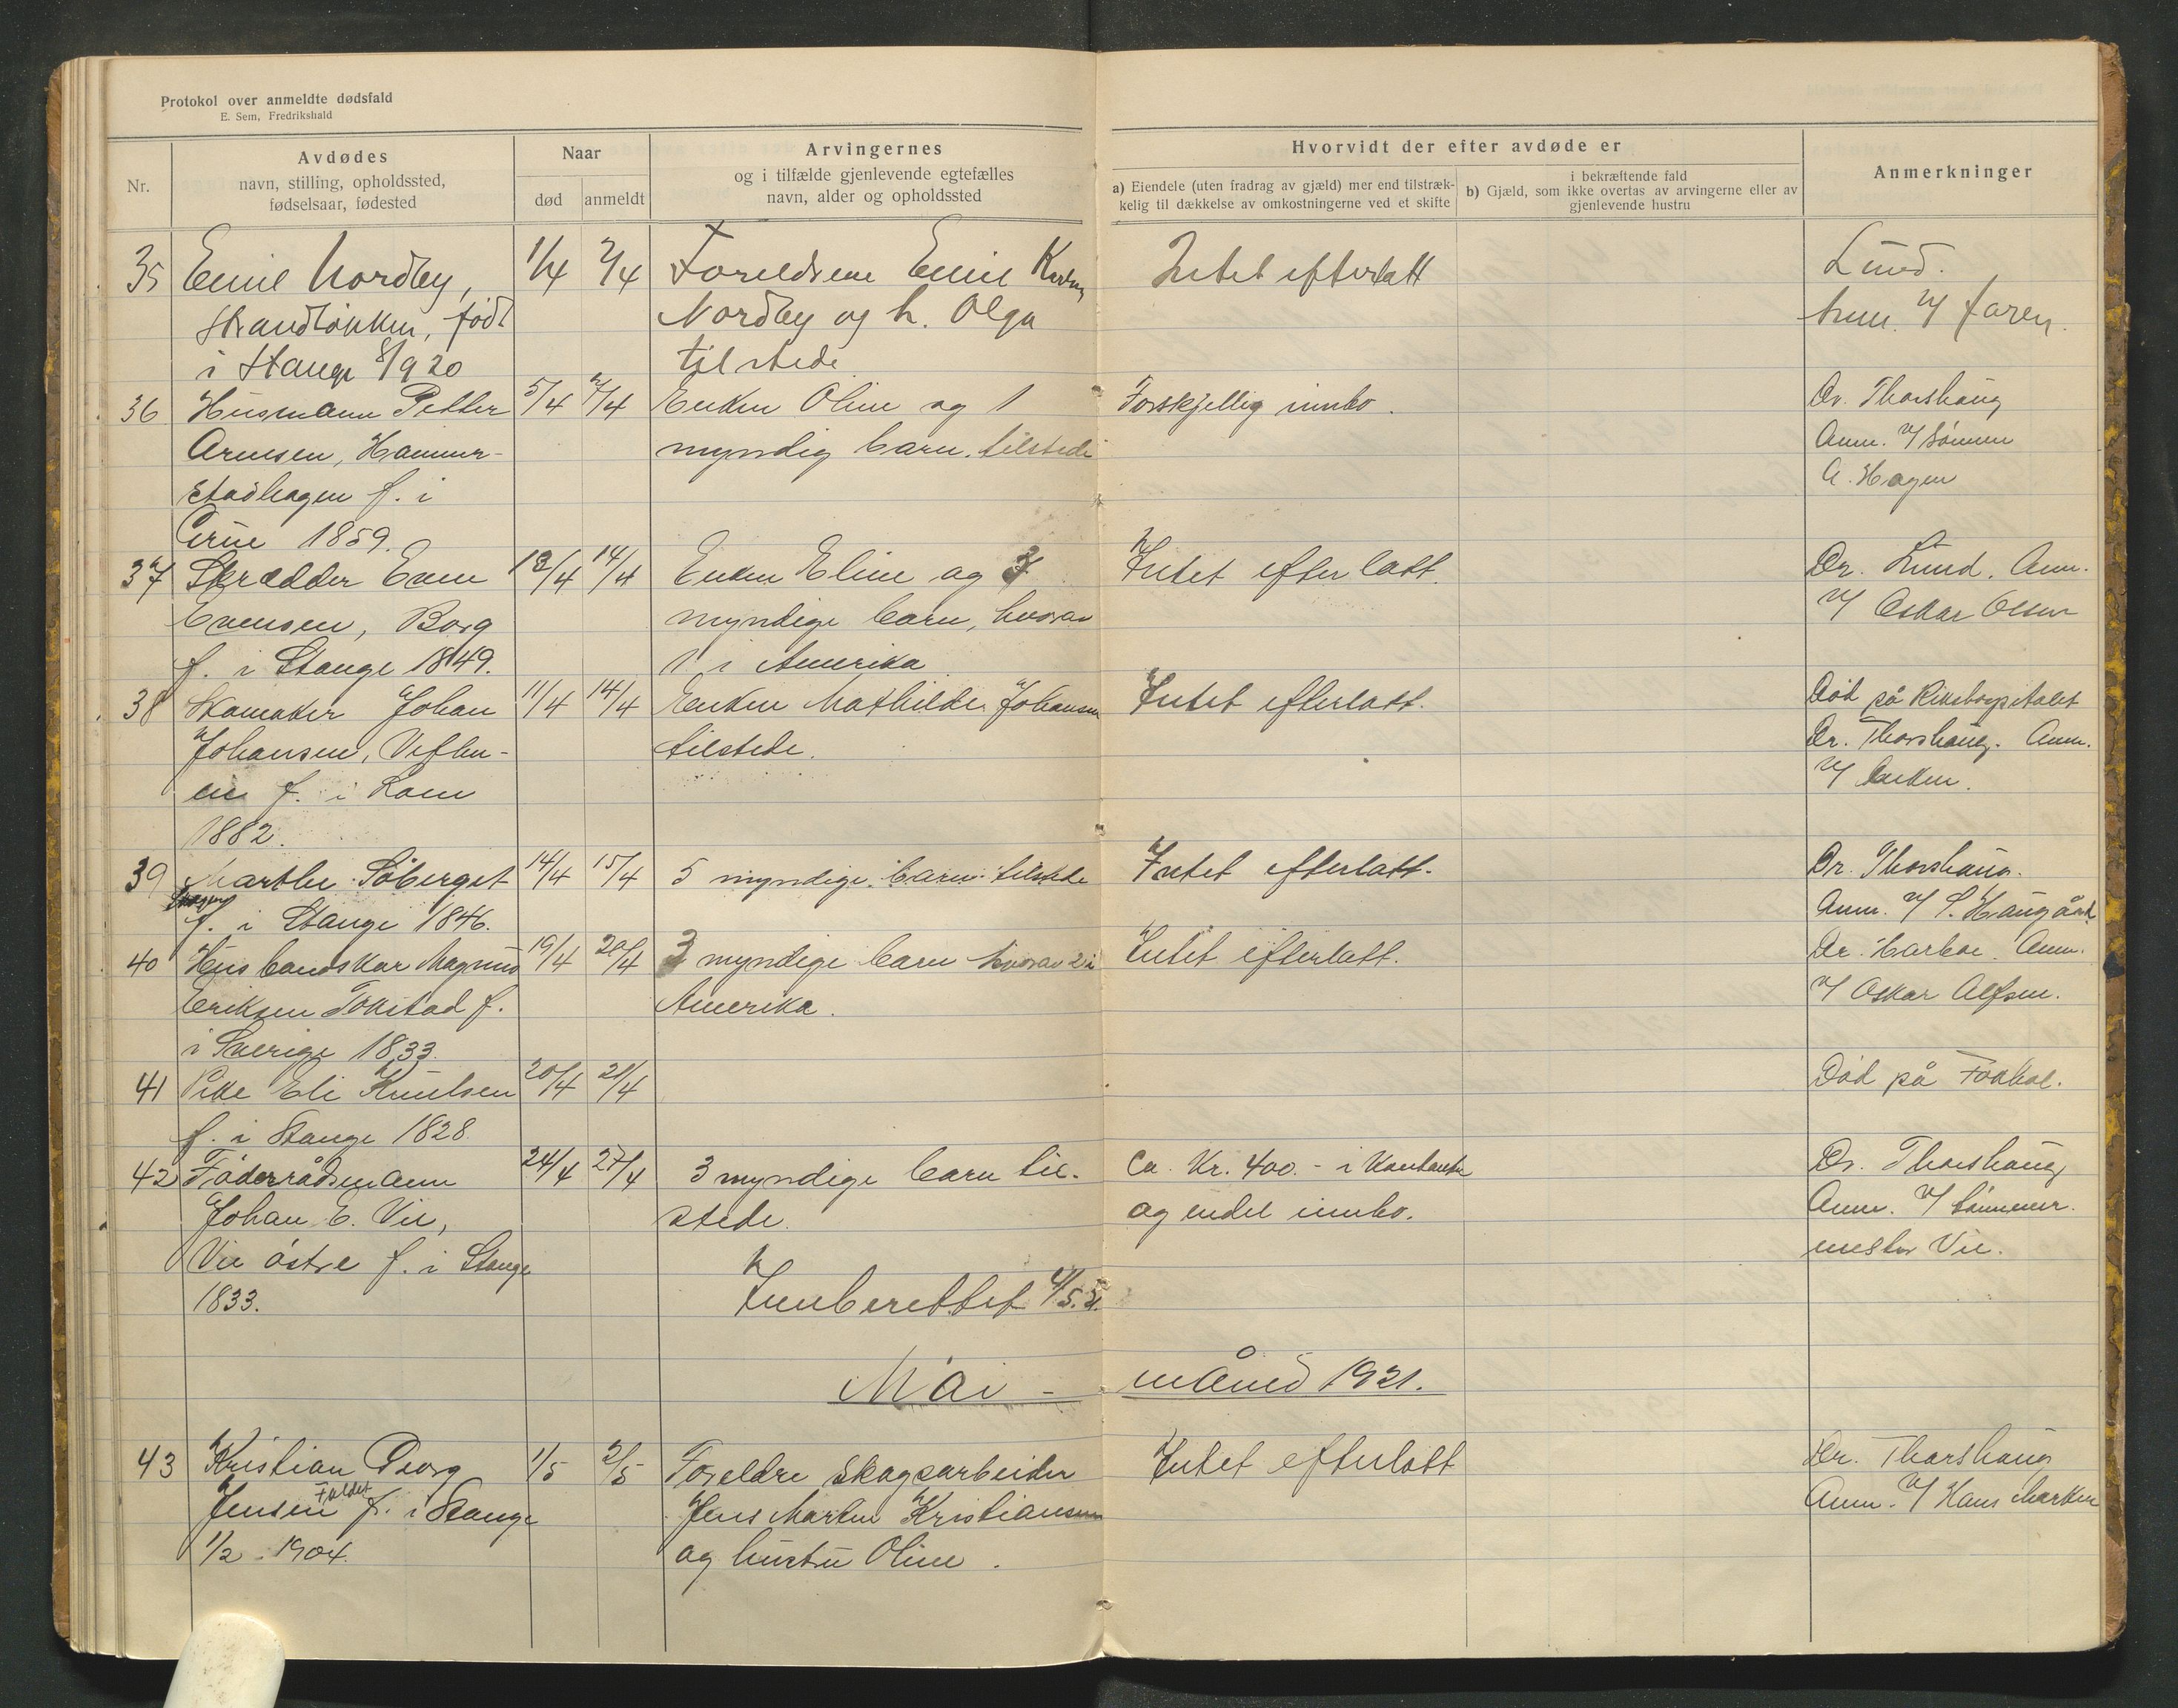 Protokol over anmeldte dødsfald
E. Sem, Fredrikshald
Nr.
Avdødes
navn, stilling, opholdssted,
fødselsaar, fødested
Naar
død
anmeldt
Arvingernes
og i tilfælde gjenlevende egtefælles
navn, alder og opholdssted
Hvorvidt der efter avdøde er
a) Eiendele (uten fradrag av gjæld) mer end tilstræk-
kelig til dækkelse av omkostningerne ved et skifte
i bekræftende fald
b) Gjæld, som ikke overtas av arvingerne eller av
gjenlevende hustru
Anmerkninger
35 Emil Nordby, 1/4 2/4 Foreldrene Emil
Strandløkken, født Nordby og h. Olga
i Stange 8/9 20 tilstede
Intet efterlatt
Lund.
Anm. v/ faren.
36 Husmann Petter 5/4 7/4 Enken Oline og 1
Arnesen, Hammer- myndig barn tilstede
stadhagen f. i
1859.
Forskjellig innbo.
Dr. Thorshaug
Anm. v/ sønnen
A. Hagen
37 Skrædder Even 13/4 14/4 Enken Eline og 3
Evensen, Borg myndige barn, hvorav
f. i Stange 1849. 1 i Amerika
Intet efterlatt.
Dr. Lund. Anm.
v/ Oskar Olsen
38 Skomaker Johan 11/4 14/4 Enken Mathilde Johansen
Johansen, tilstede.
f. i Lom
1882.
Intet efterlatt.
Død på Rikshospitalet
Dr. Thorshaug. Anm.
v/ enken.
39 Marthe Søberget 14/4 15/4 5 myndige barn tilstede
f. i Stange 1846.
Intet efterlatt.
Dr. Thorshaug.
Anm. v/
40 Husbandskar Magnus 19/4 20/4 3 myndige barn hvorav 2 i
Eriksen Tokstad f. Amerika.
i Sverige 1833.
Intet efterlatt.
Dr. Harboe. Anm.
v/ Oskar Alfsen.
41 Pike Eli Knutsen 20/4 21/4
f. i Stange 1828.
Død på Fokhol.
42 Føderrådsmann 24/4 27/4 3 myndige barn til-
Johan E. Vie, stede.
Vie østre f. i Stange
1833.
Ca. Kr. 400.- i kontanter
og endel innbo.
Dr. Thorshaug
Anm. v/
mester Vie.
Innberettet 4/5.21.
Mai - måned 1921.
43 Kristian Georg 1/5 2/5 Foreldre skogsarbeider
Jensen Faldet f. i Stange Jens Martin Kristiansen
1/2 1904. og hustru Oline.
Intet efterlatt
Dr. Thorshaug
Anm. v/ Hans Marken